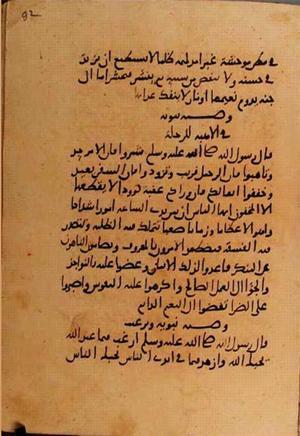 في
من حسنه ولا ينقص من سيئه ثم يبشر فصبرا اما الى
جنه يدوم نعيمها او نار لا ينفد عذابها
وصيه نبويه
في الاهبه للرحله
قال رسول الله صلى الله عليه وسلم شمروا فان الامر جد
وتاهبوا فان الرحيل قريب وتزودوا فان السفر بعيد
وخففوا اثقالكم فان وراكم عقبه كوودا لا يقطعها
الا المخفون ايها الناس ان بين يدي الساعه امورا شدادا
واهوالا عظاما وزمانا صعبا يتملك فيه الظلمه ويتصدر
فيه الفسقه فيضطهد الامرون بالمعروف ويضام الناهون
عن المنكر فاعدوا لذلك الايمان وعضوا عليه بالنواجذ
والجوا الى العمل الصالح واكرهوا عليه النفوس واصبروا
على الضرا تفضوا الى النعيم الدايم
وصيه نبويه وترغيب
قال رسول الله صلى الله عليه وسلم ارغب فيما عند الله
يحبك الله وازهد فيما في ايدي الناس يحبك الناس